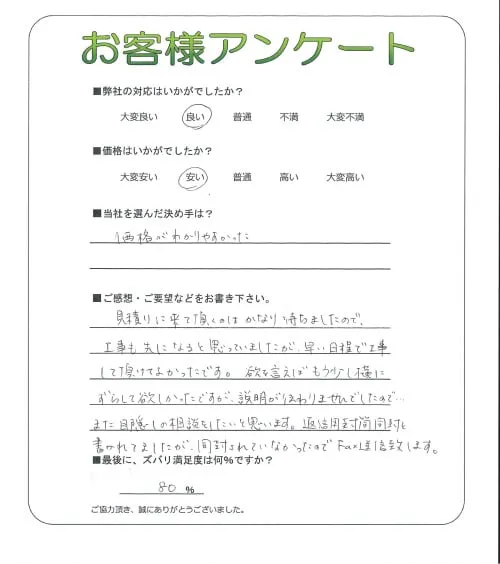 お客様アンケート
■弊社の対応はいかがでしたか？
大変良い 良い 普通 不満 大変不満
■価格はいかがでしたか？
大変安い 安い 普通 高い 大変高い
■当社を選んだ決め手は？
価格がわかりやすかった
■ご感想・ご要望などをお書き下さい。
見積りに来て頂くのはかなり待ちましたので、
工事も先になると思っていましたが、早い日程で工事
して頂けてよかったです。欲を言えばもう少し横に
ずらして欲しかったですが、説明が伝わりませんでしたので…
また目隠しの相談をしたいと思います。返信用封筒同封と
書かれてましたが、同封されていなかったのでFax送信致します。
■最後に、ズバリ満足度は何％ですか？
80 ％
ご協力頂き、誠にありがとうございました。